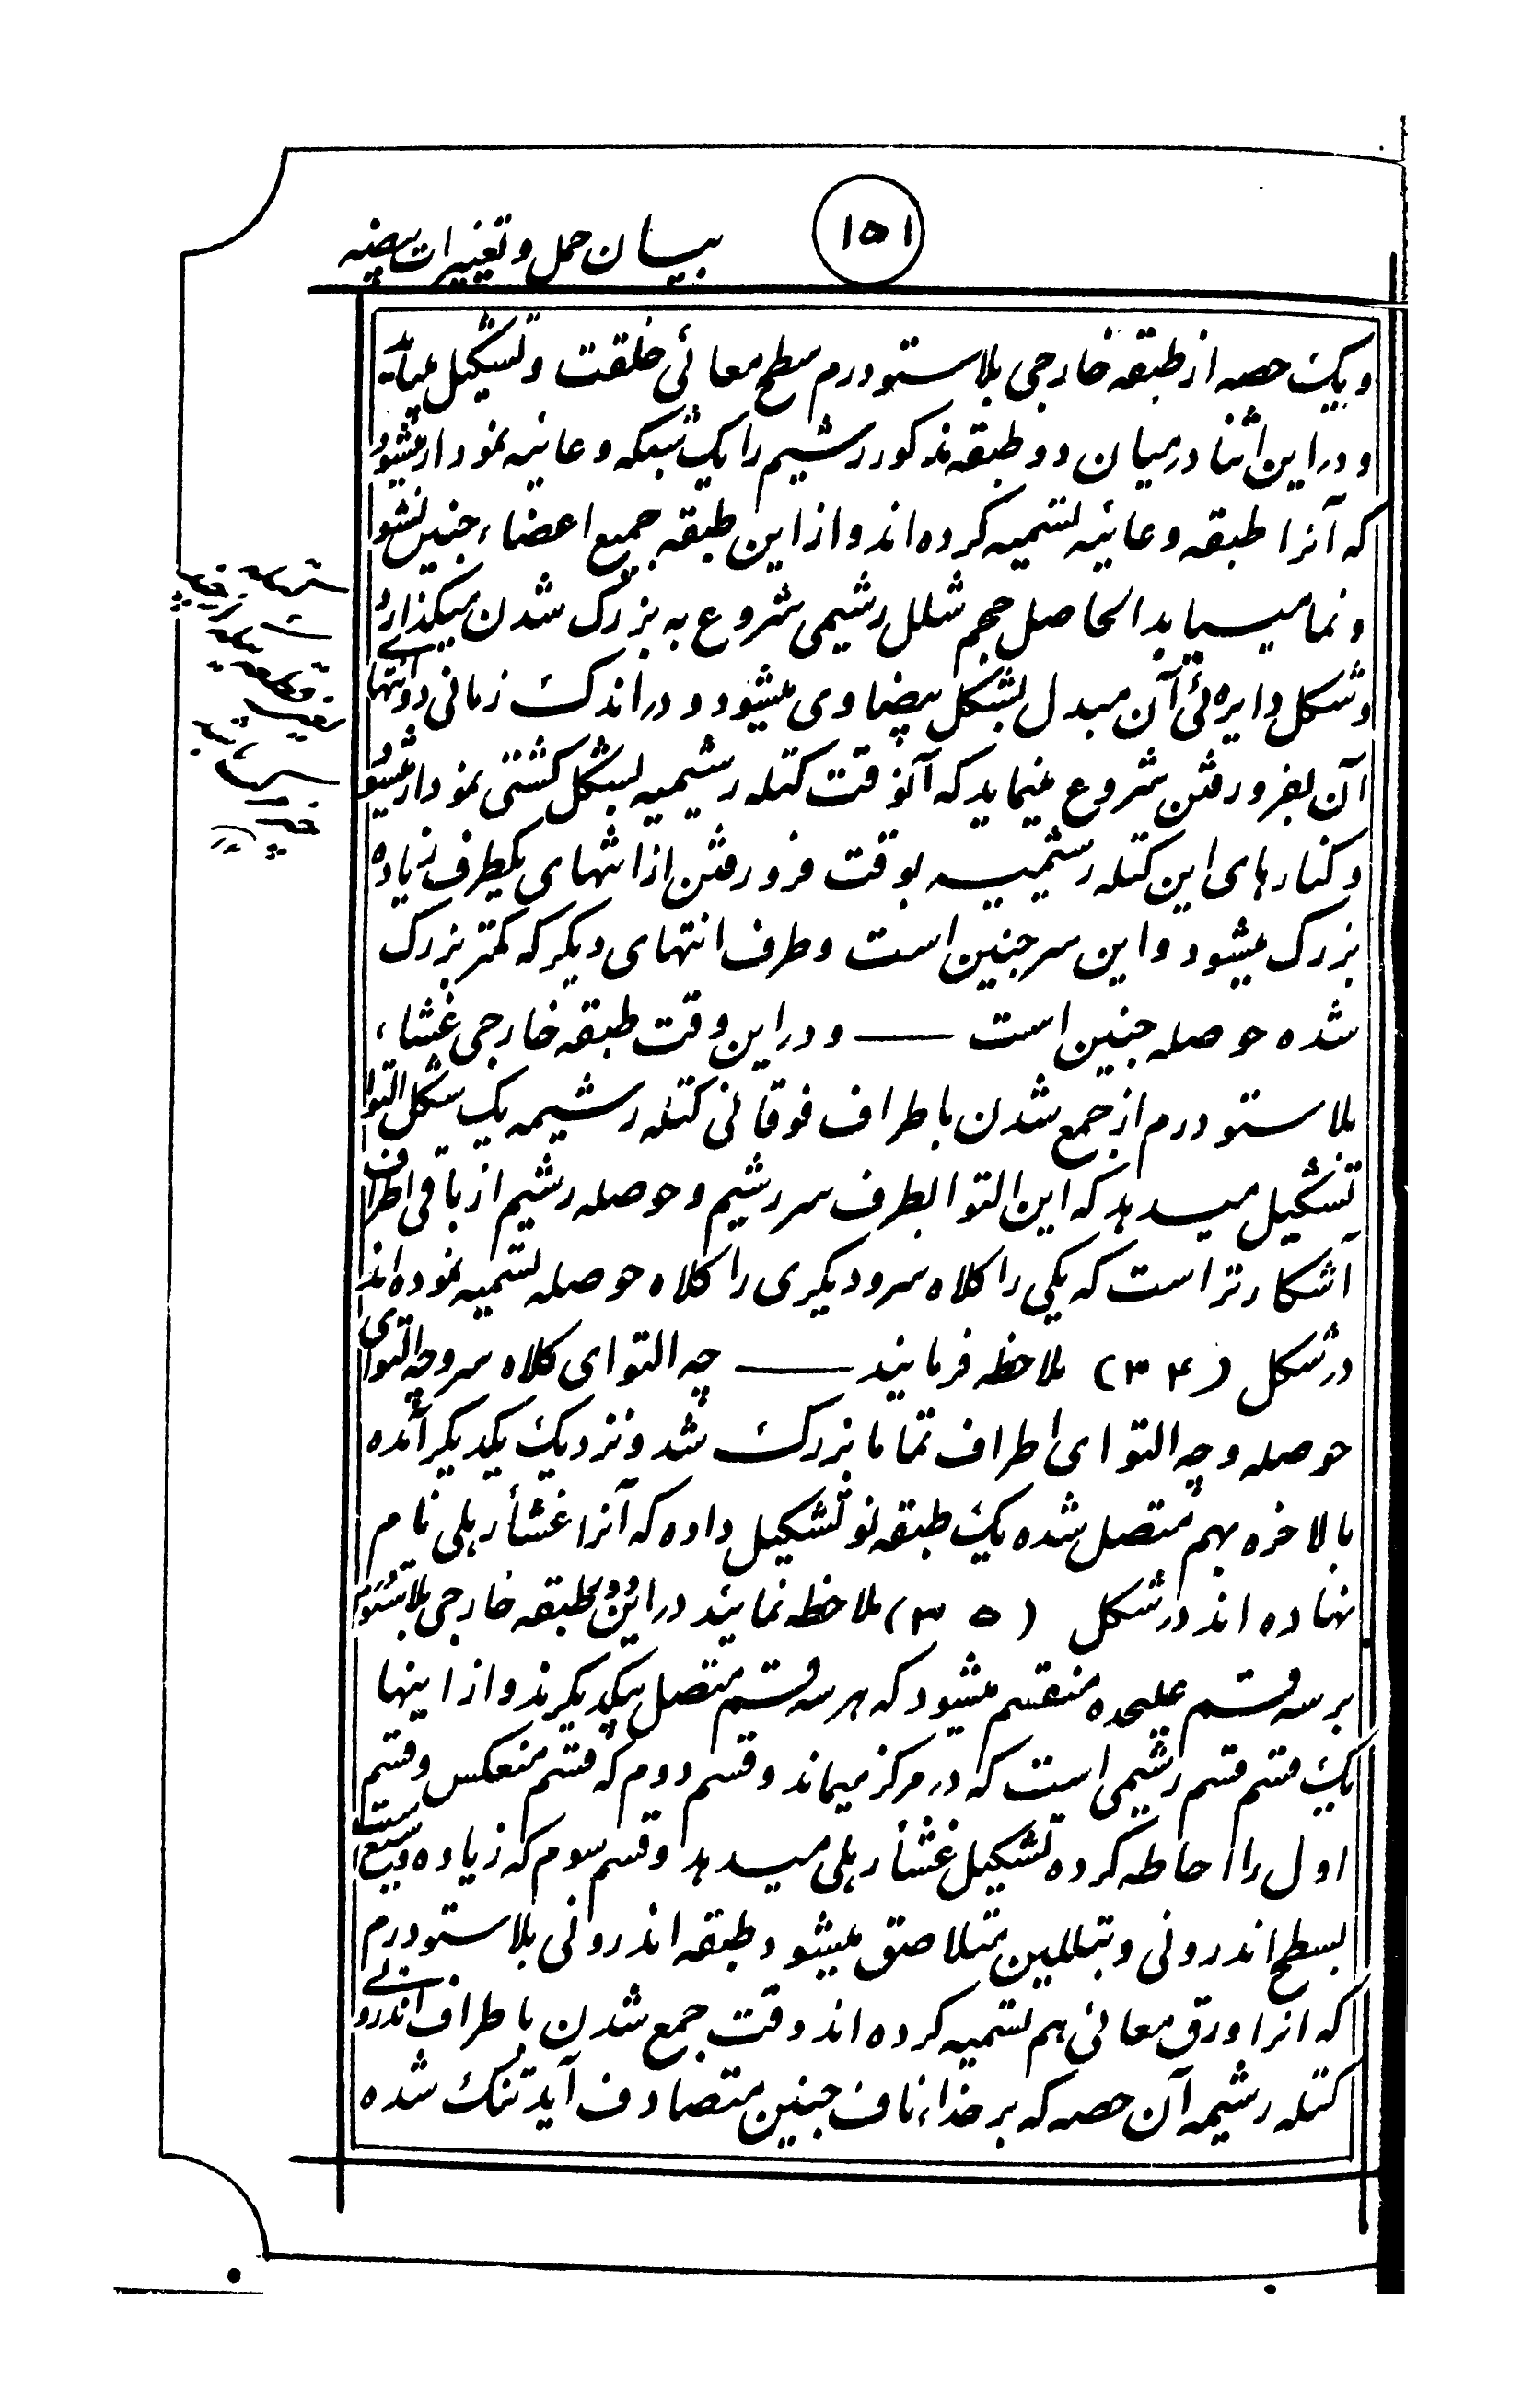 بیان حمل و تغییرات بیضه
۱۵۱
و یک حصه از طبقه خارجی بلاستودرم سطح معائی خلقت و تشکیل میآید
و در این اثنا در میان دو طبقه مذکور رشیم را یک شبکه وعائیه نمودار میشود
که آنرا طبقه وعائیه تسمیه کرده اند و از این طبقه جمیع اعضاء جنین نشو
و نما میسیابد الحاصل حجم شلل رشیمی شروع به بزرگ شدن میگذارد
و شکل دایره ئی آن مبدل بشکل بیضاوی میشود و در اندک زمانی دو انتهای
آن بفرو رفتن شروع مینماید که آنوقت کتله رشیمیه بشکل کشتی نمودار میشود
و کنارهای این کتله رشیمیه بوقت فرو رفتن از انتهای یکطرف زیاده
بزرگ میشود و این سر جنین است و طرف انتهای دیگر که کمتر بزرگ
شده حوصله جنین است — و در این وقت طبقه خارجی غشاء
بلاستودرم از جمع شدن باطراف فوقانی کتله رشیمه یک شکل التوا
تشکیل میسدهد که این التوا بطرف سر رشیم و حوصله رشیم از باقی اطراف
آشکارتر است که یکی را کلاه سر و دیگری را کلاه حوصله تسمیه نموده اند
در شکل (۳۴) ملاحظه فرمایند — چه التوای کلاه سر و چه التوای
حوصله و چه التوای اطراف تماما بزرگ شد و نزدیک یکدیگر آمده
بالاخره بهم متصل شده یک طبقه نو تشکیل داده که آنرا غشأ رهلی نام
نهاده اند در شکل (۳۵) ملاحظه نمایند در این طبقه خارجی بلاستودرم
بر سه قسم علیحده منقسم میشود که هر سه قسم متصل یکدیگرند و از اینها
یک قسم قسم رشیمی است که در مرکز میماند و قسم دوم که قسم منعکس و قسم
اول را احاطه کرده تشکیل غشأ رهلی میسدهد و قسم سوم که زیاده وسیع است
بسطح اندرونی وبتللین متلاصق میشود و طبقه اندرونی بلاستودرم
که انرا ورق معائی هم تسمیه کرده اند وقت جمع شدن باطراف اندرونی
کتله رشیمه آن حصه که بر حذاء ناف جنین متصادف آید تنک شده